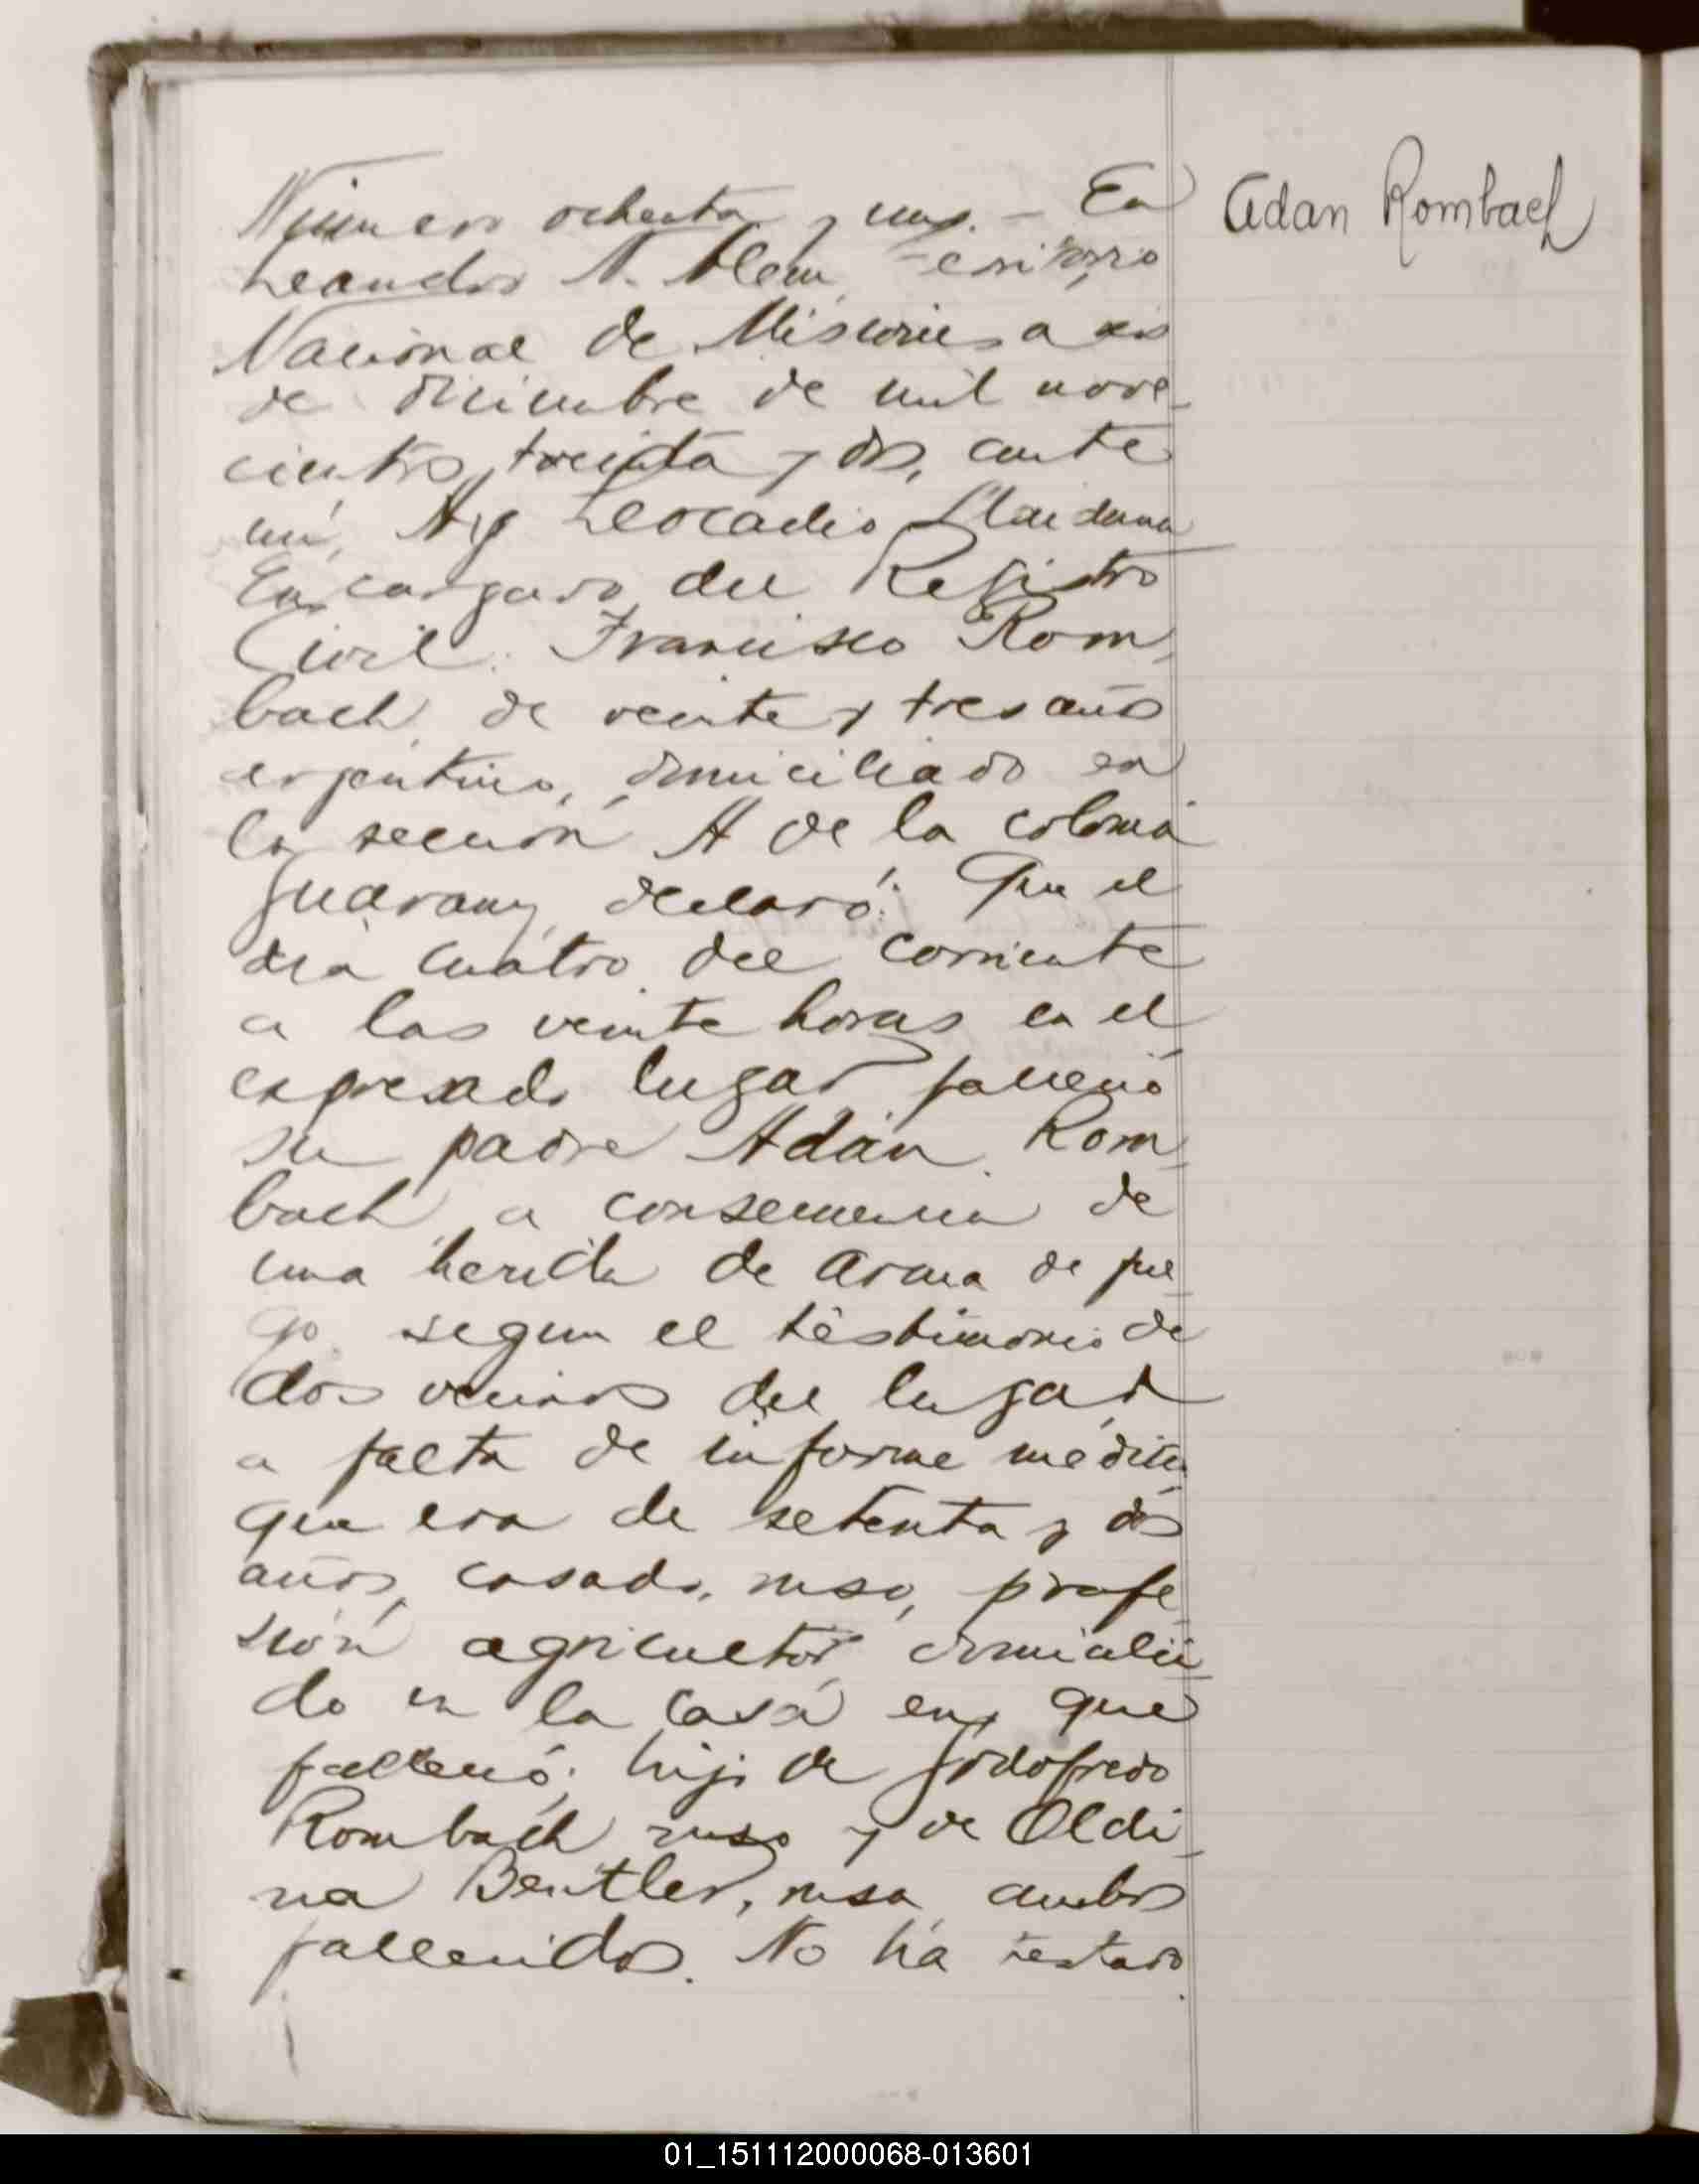 Número ochenta y uno. – En
Adan Rombach
Leandro N. Alem, Territorio
Nacional de Misiones a seis
de diciembre de mil nove-
cientos treinta y dos, ante
mí, Leocadio
Encargado del Registro
Civil. Francisco Rom-
bach, de veinte y tres años
argentino, domiciliado en
la sección A de la colonia
Guarany, declaró: Que el
día cuatro del corriente
a las veinte horas en el
expresado lugar falleció
su padre Adán Rom-
bach, a consecuencia de
una herida de arma de fue-
go segun el testimonio de
dos vecinos del lugar
a falta de informe médico
que era de setenta y dos
años, casado, ruso, profe-
sión agricultor domicilia-
do en la casa en que
falleció; hijo de Godofredo
Rombach ruso y de Oldi-
na Bentler, rusa ambos
fallecidos. No ha testado.
01_151112000068-013601